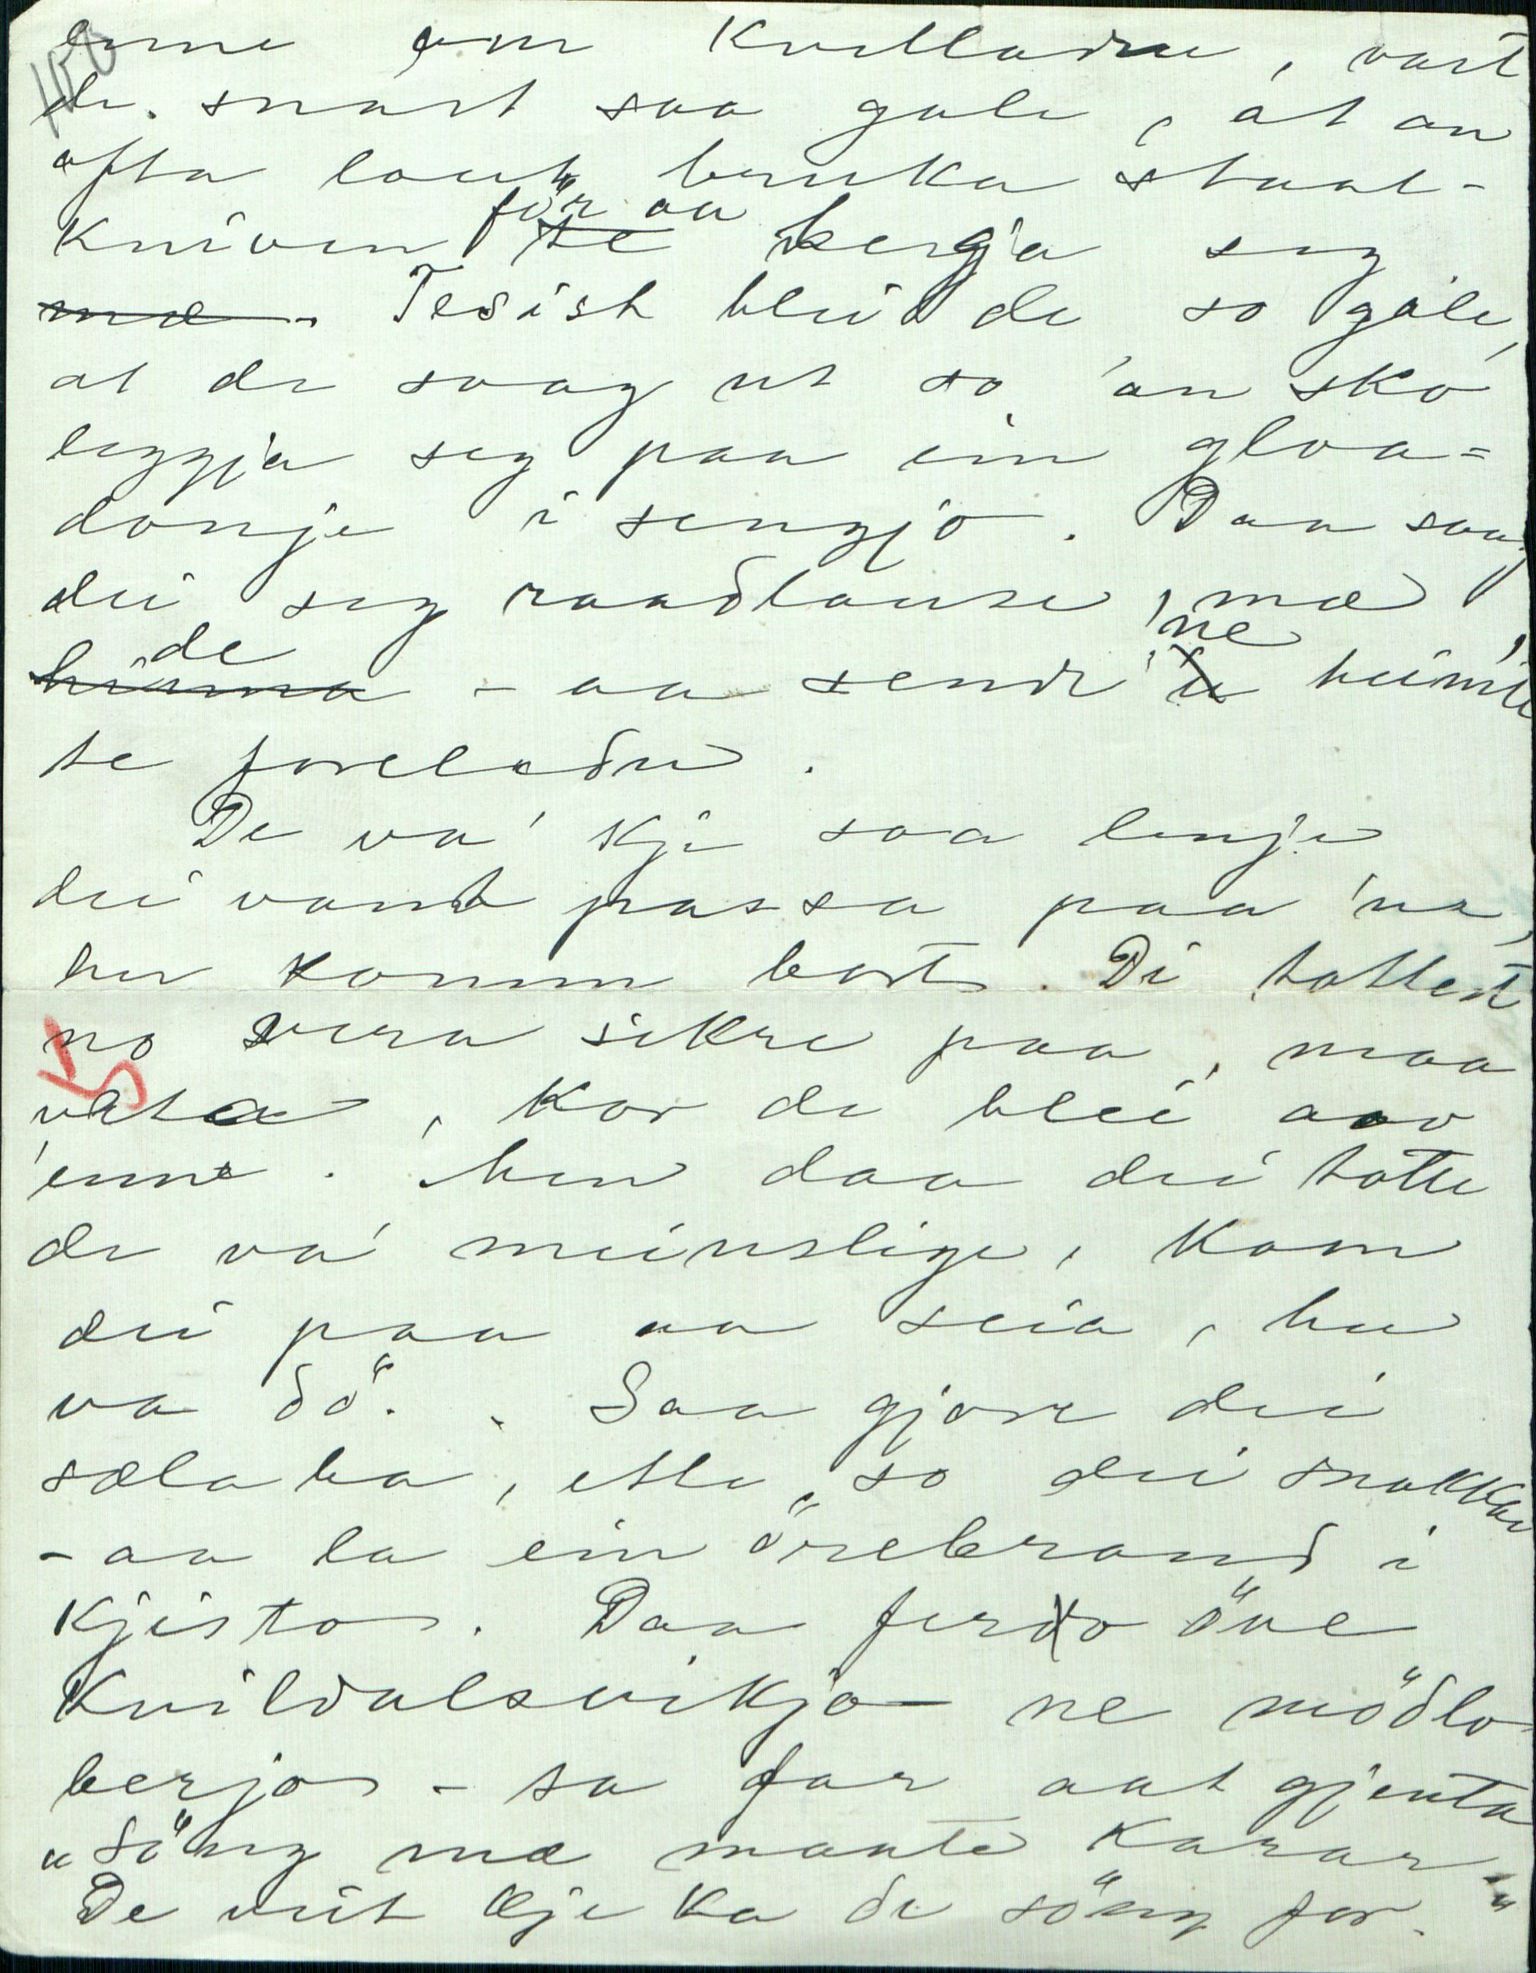 enne om Kvelladne, vart
de. snart saa gale, at an
ofta laut bruka staal-
kniven för aa bergja seg
mæ. Tesist blei de so gale,
at de saag ut so 'an sko
leggja seg paa ein gloa-
donje i sengjo. Daa saag
dei seg raadlause, mæ
de - aa sende 'ne heim'te
te foreldre.
De va' kje saa lenje
dei vant passa paa 'na,
hu komm bort. Di tottest
no vera sikre paa, maa
vita, kor de blei aav
'enne. Men daa dei totte
de va' meinslige, kom
dei paa aa seia, hu
va dö. Saa gjore dei
sælaba, ette so dei snakka
- aa la ein örebrand i
Kjisto. Daa fero öve
Kvildalsvikjo ne mödlo
berjo - sa far aat gjenta
"Söng me maate Karar"
De veit kje ka de söng for.
150